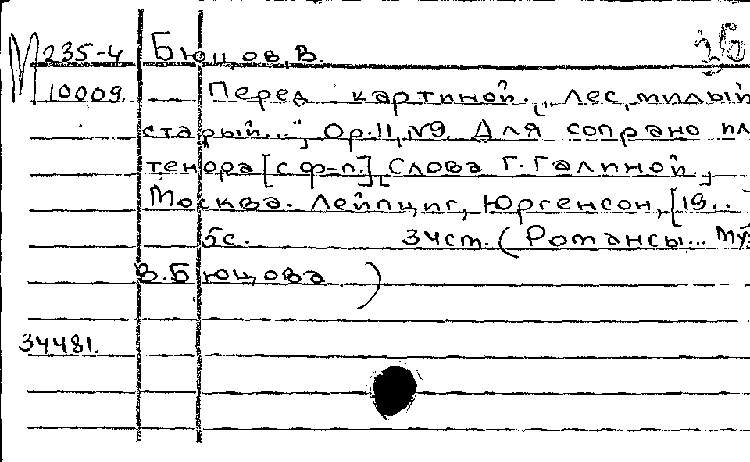 М 235-4 Бюцов, В. 36
10009. Перед картиной. „Лес, милый
старый...", Op.11, №9. Для сопрано
тенора [с ф-п.]. [Слова Г. Галиной]
Москва. Лейпциг, Юргенсон, [19..
5с. 34см. (Романсы...
В. Бюцова)
34481.